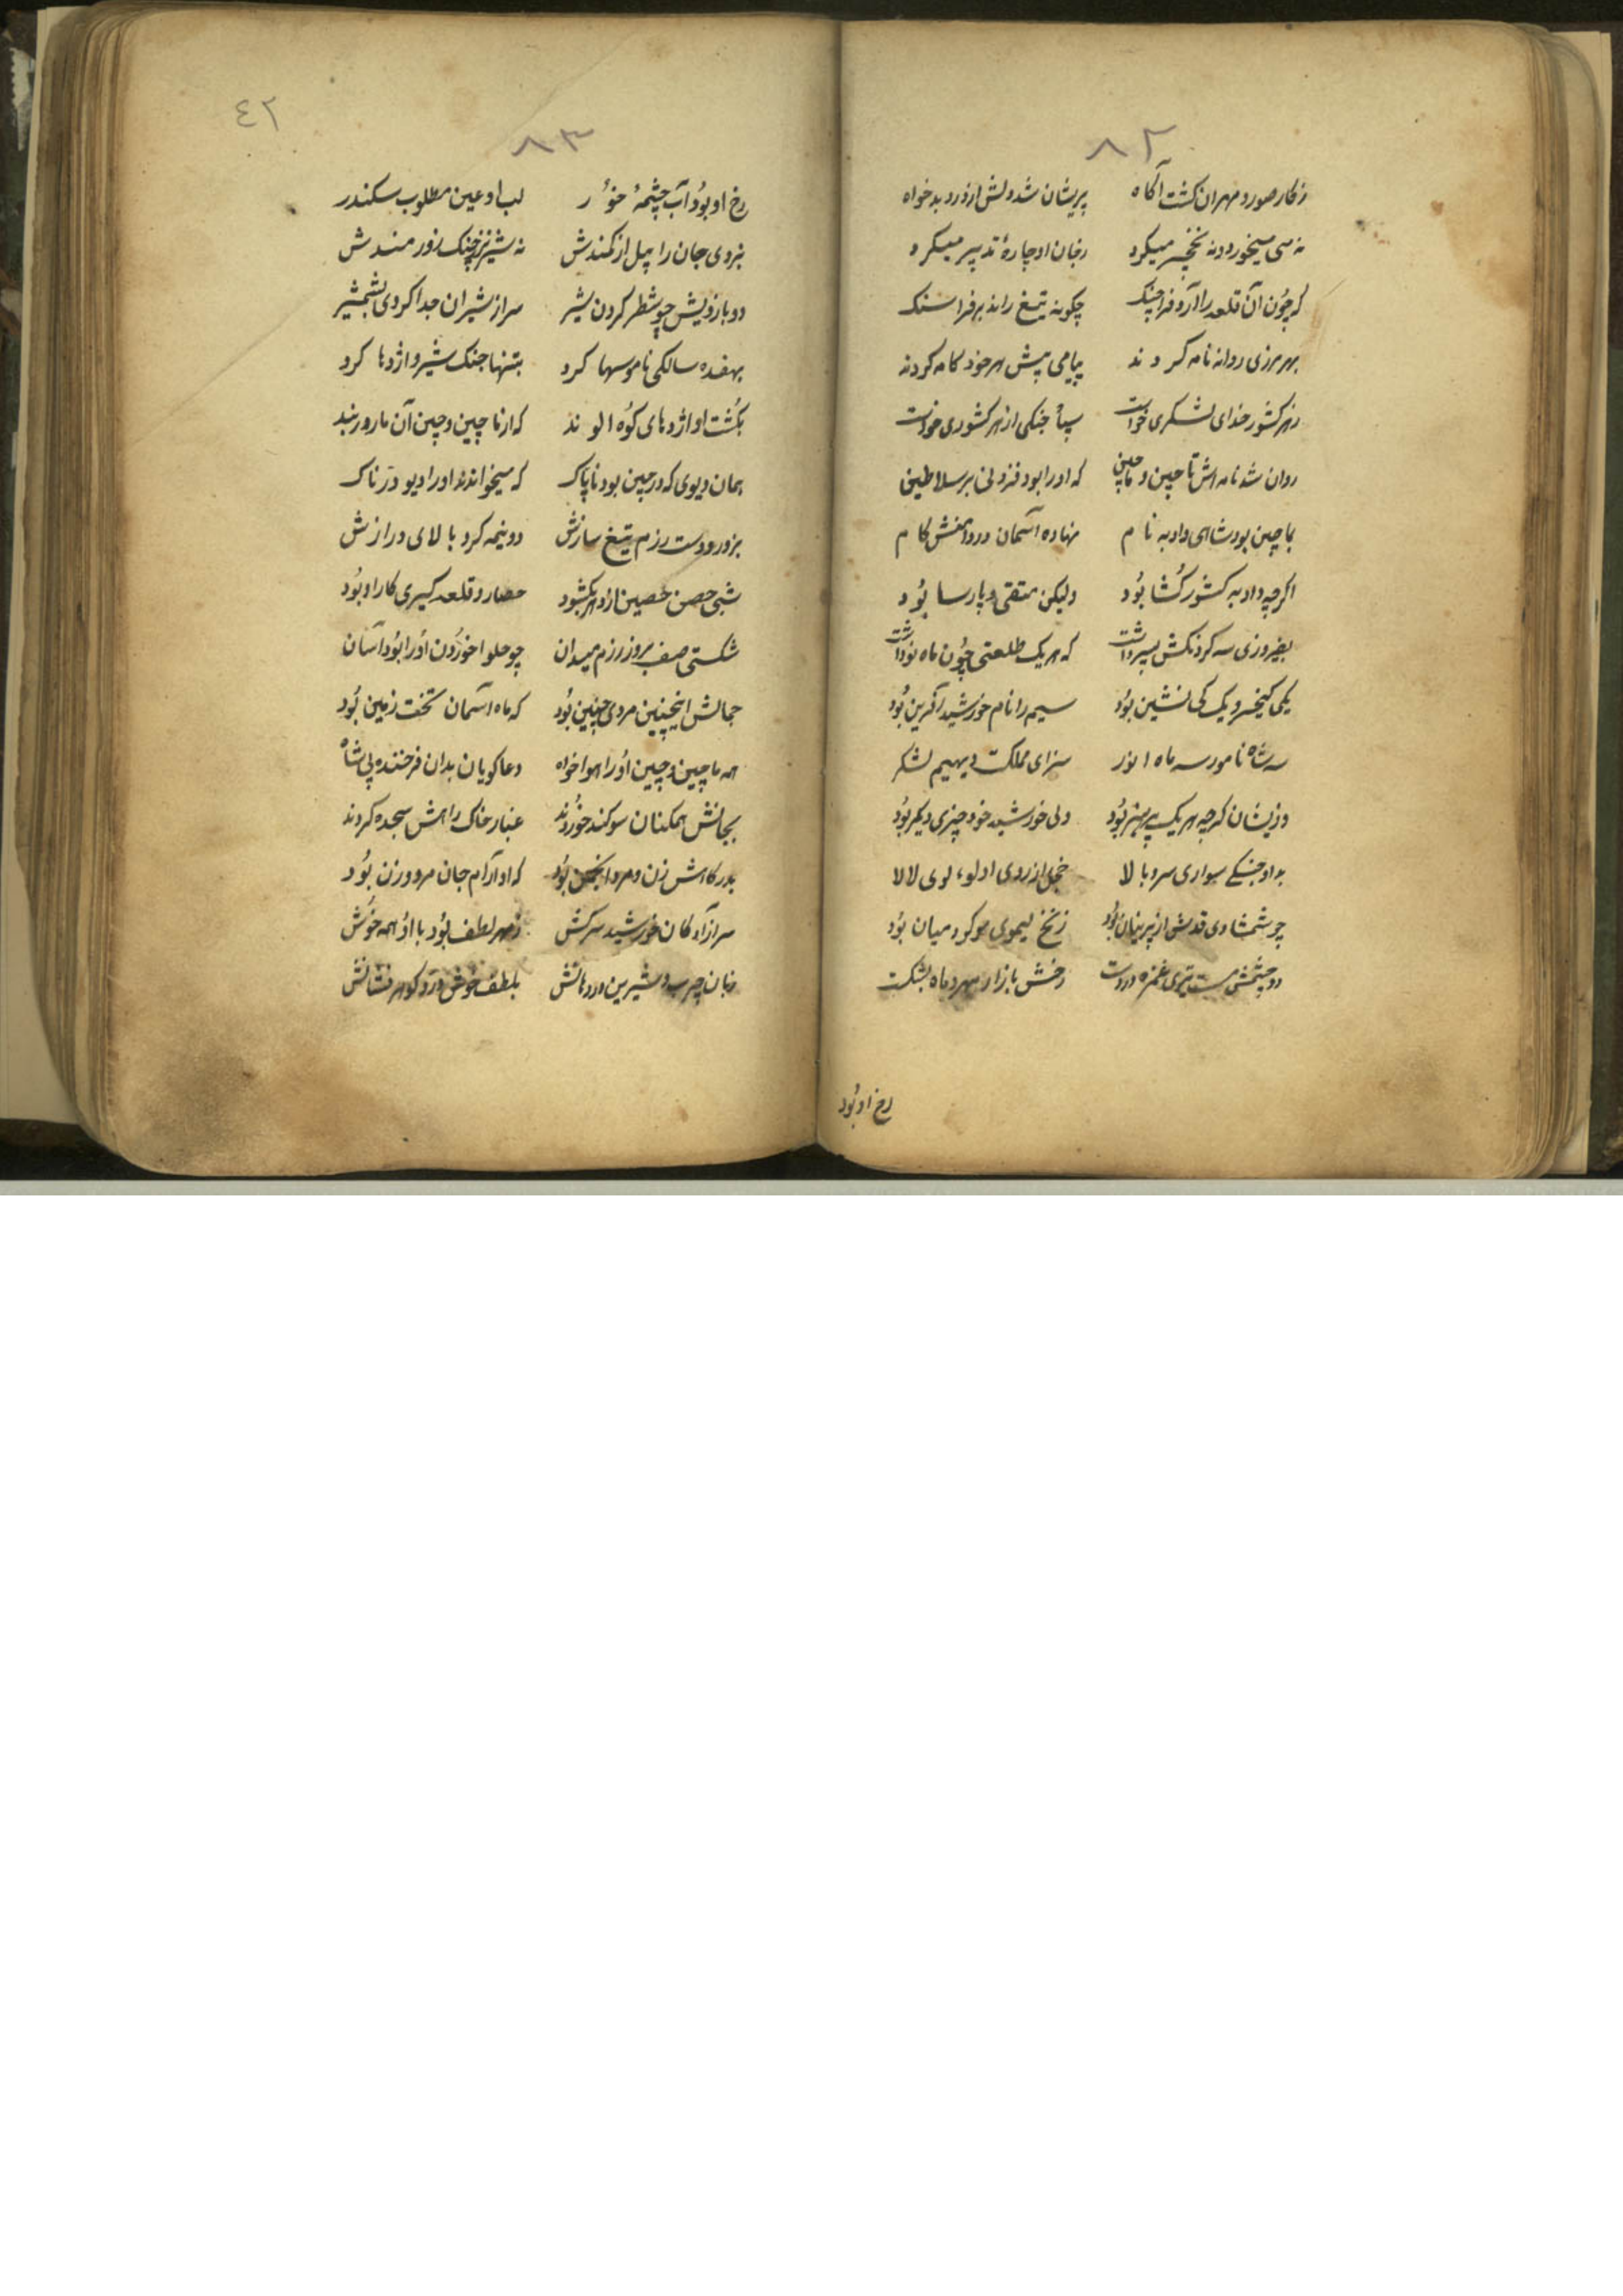 ۸۲
ز کار صور و مهران کشت آکاه پریشان شد دلش از درد بدخواه
نه می میخورد و نه نخچیر میکرد ز جان او چارهٔ تدبیر میکرد
که چون آن قلعه را آرد فرا چنک چکونه تیغ راند بر فراسنک
بهر مرزی روانه نامه کردند پیامی پیش هر خودکامه کردند
ز هر کشور خدای لشکری خواست سپاه جنکی از هر کشوری خواست
روان شد نامه اش تا چین و ماچین که او را بود فزونی بر سلاطین
بماچین بود شاهی دادبه نام نهاده آسمان در دامنش کام
اکرچه دادبه کشور کشا بُود ولیکن متقی و پارسا بُود
بفیروزی سه کردنکش پسر داشت که هر یک طلعتی چون ماه نو داشت
یکی کیخسرو یک کی نشین بُود سیم را نام خورشید آفرین بُود
سه شاه نامور سه ماه انور سزای مملکت دیهیم لشکر
وزیشان کرچه هر یک پر هنر بُود ولی خورشید خود چیزی دکر بُود
بد او جنکی سواری سرو بالا خجل از روی او لوءلوی لالا
چو شمشادی قدش از پرنیان بُود زنخ لیموی مو کرد میان بُود
دو چشمش مست تیری غمزه در دست رخش بازار مهر و ماه بشکست
رخ او بُود
٤٢
۸۳
رخ او بُود آب چشمهٔ خوُر لب او عین مطلوب سکندر
بزدی جان را پیل از کمندش نه شیر نر ز چنک زورمندش
دو بازویش چو شطر کردن شیر سر از شیران جدا کردی بشمشیر
بهفده سالکی ناموسها کرد بتنها جنک شیر و اژدها کرد
بکُشت او اژدهای کوُه الوند که از ماچین و چین آن مار و ر بند
همان دیوی که در چین بود ناپاک که میخواندند او را دیو درناک
بزور و دست رزم تیغ سازش دو نیمه کرد بالای درازش
شبی حصن حصین از دهر بکشود حصار و قلعه کیری کار او بُود
شکستی صف بروز رزم میدان چو حلوا خوردن اوُ را بُود آسان
جمالش اینچنین مردی چنین بُود که ماه آسمان تخت زمین بُود
همه ماچین و چین اوُ را هواخواه دعا کویان بدان فرخنده پی شاه
بجانش همکنان سوکند خوردند غبار خاک راهش سجده کردند
بدرکاهش زن و مرد انجمن بُود که او آرام جان مرد و زن بُود
سر آزادکان خورشید سرکش ز مهر لطف بُود با اوُ همه خوُش
زبان چرب و شیرین در دهانش بلطف خوش در و کوهر فشانش